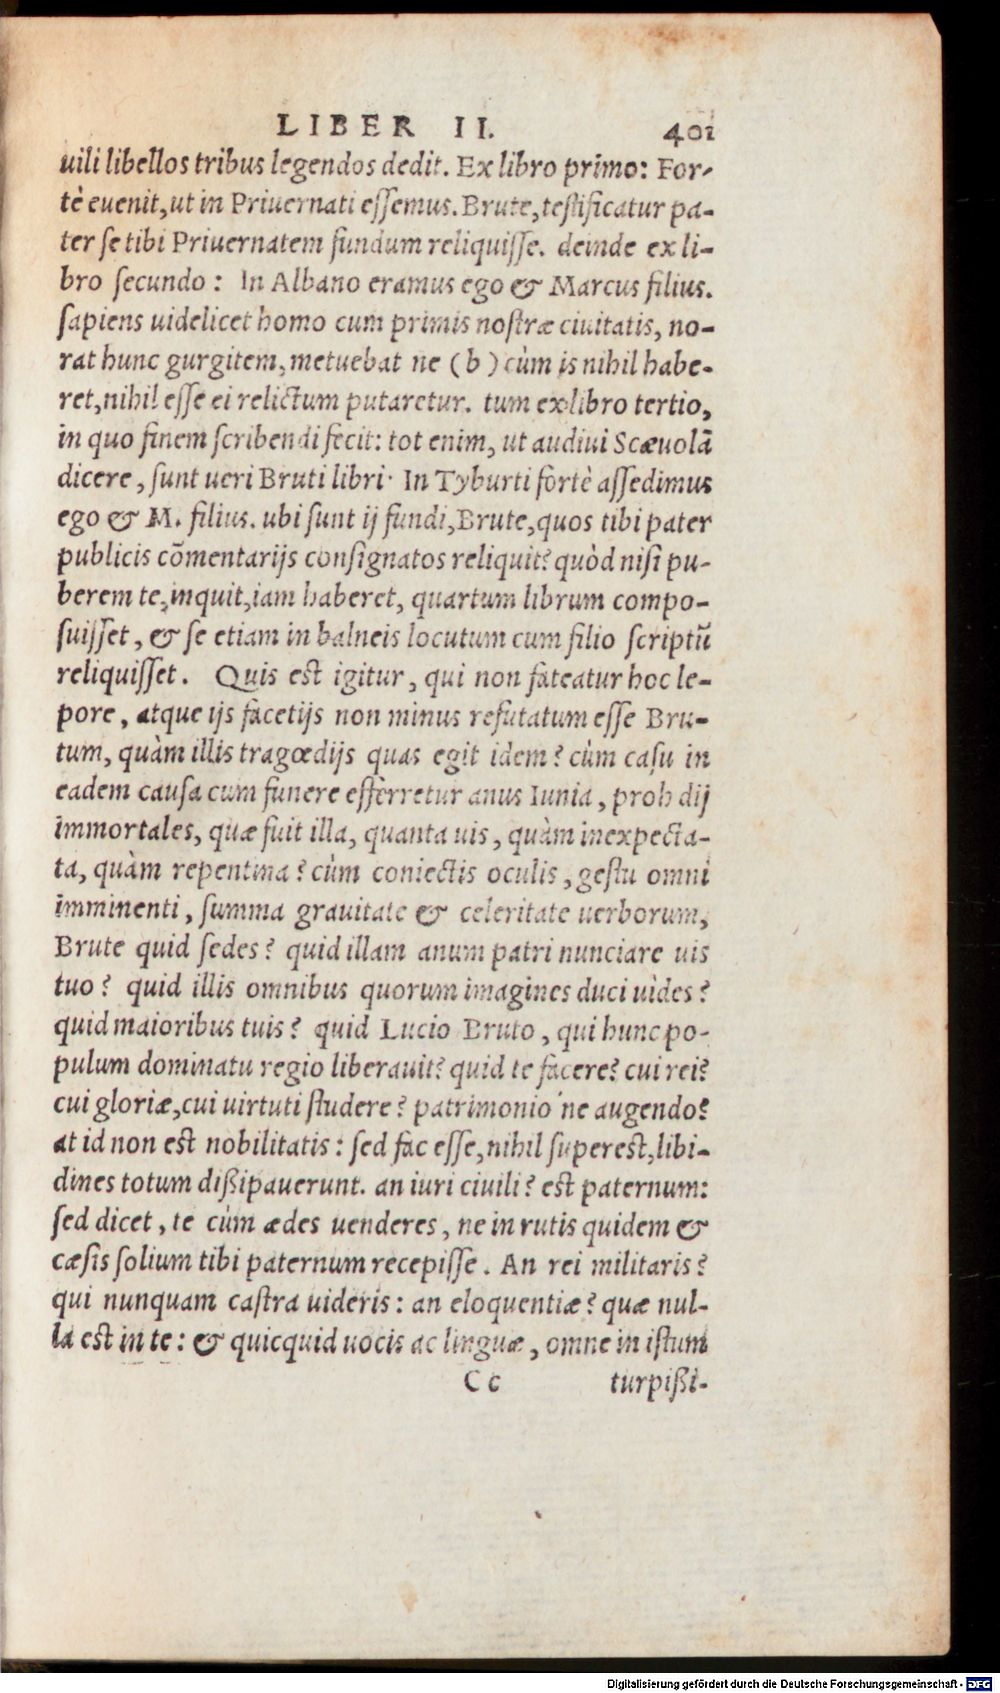 LIBER II. 401
uili libellos tribus legendos dedit. Ex libro primo: For-
tè euenit, ut in Priuernati essemus. Brute, testificatur pa-
ter se tibi Priuernatem fundum reliquisse. deinde ex li-
bro secundo: In Albano eramus ego & Marcus filius.
sapiens uidelicet homo cum primis nostræ ciuitatis, no-
rat hunc gurgitem, metuebat ne (b) cùm is nihil habe-
ret, nihil esse ei relictum putaretur. tum ex libro tertio,
in quo finem scribendi fecit: tot enim, ut audiui Scæuolā
dicere, sunt ueri Bruti libri· In Tyburti fortè assedimus
ego & M. filius. ubi sunt ij fundi, Brute, quos tibi pater
publicis cōmentarijs consignatos reliquit? quòd nisi pu-
berem te, inquit, iam haberet, quartum librum compo-
suisset, & se etiam in balneis locutum cum filio scriptū
reliquisset. Quis est igitur, qui non fateatur hoc le-
pore, atque ijs facetijs non minus refutatum esse Bru-
tum, quàm illis tragœdijs quas egit idem? cùm casu in
eadem causa cum funere efferretur anus Iunia, proh dij
immortales, quæ fuit illa, quanta uis, quàm inexpecta-
ta, quàm repentina? cùm coniectis oculis, gestu omni
imminenti, summa grauitate & celeritate uerborum,
Brute quid sedes? quid illam anum patri nunciare uis
tuo? quid illis omnibus quorum imagines duci uìdes?
quid maioribus tuis? quid Lucio Bruto, qui hunc po-
pulum dominatu regio liberauit? quid te facere? cui rei?
cui gloriæ, cui uirtuti studere? patrimonio ne augendo?
at id non est nobilitatis: sed fac esse, nihil superest, libi-
dines totum dißipauerunt. an iuri ciuili? est paternum:
sed dicet, te cùm ædes uenderes, ne in rutis quidem &
cæsis solium tibi paternum recepisse. An rei militaris?
qui nunquam castra uideris: an eloquentiæ? quæ nul-
la est in te: & quicquid uocis ac linguæ, omne in istum
Cc turpißi-
Digitalisierung gefördert durch die Deutsche Forschungsgemeinschaft - DFG